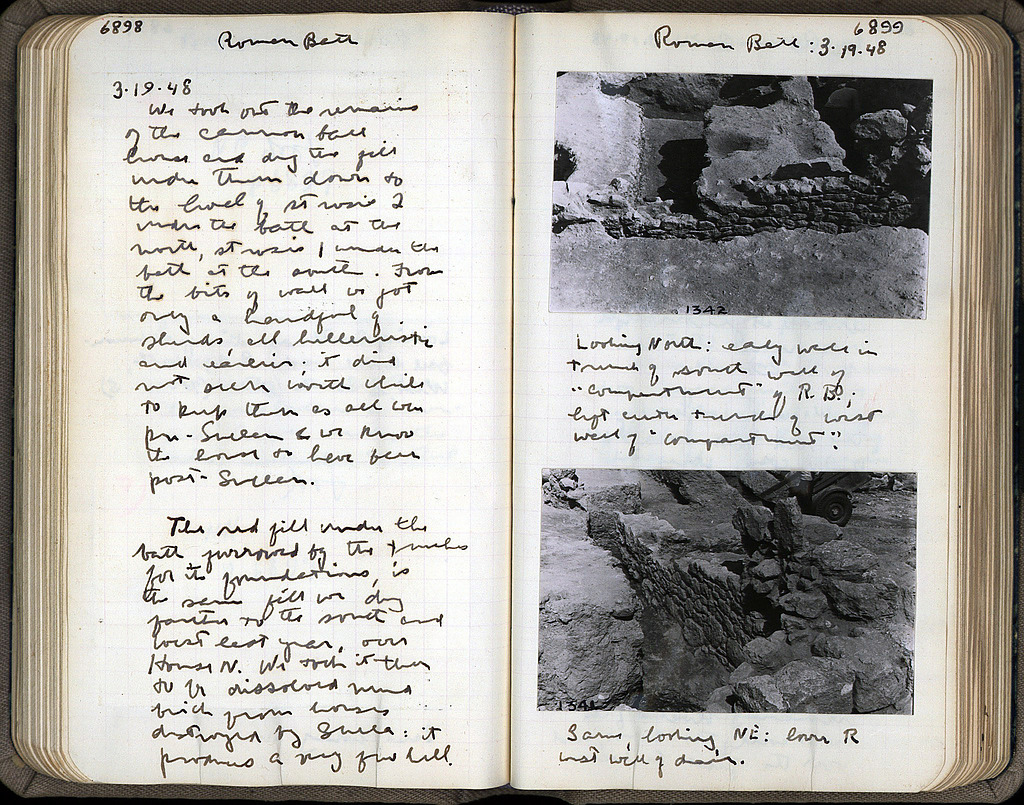 6898
Roman Bath
3·19·48
We took out the remains
of the cannon ball
house and dug the fill
under them down to
the level of stosis 2
under the bath at the
north, stosis 1 under the
bath at the south. From
the bits of wall we got
only a handful of
sherds, all hellenistic
and earlier; it did
not seem worth while
to keep them as all were
pre-Sullan & we know
the house to have been
post-Sullan.
The red fill under the
bath, furrowed by the trenches
for its foundations, is
the same fill we dug
farther to the south and
west last year, over
House N. We took it then
to be dissolved mud
brick from houses
destroyed by Sulla: it
produces a very few hell.
6899
Roman Bath: 3·19·48
1342
Looking North: early wall in
trench of south wall of
"compartment" of R. B.;
left center trench of west
wall of "compartment".
1341
Same, looking NE: lower R
west wall of drain.